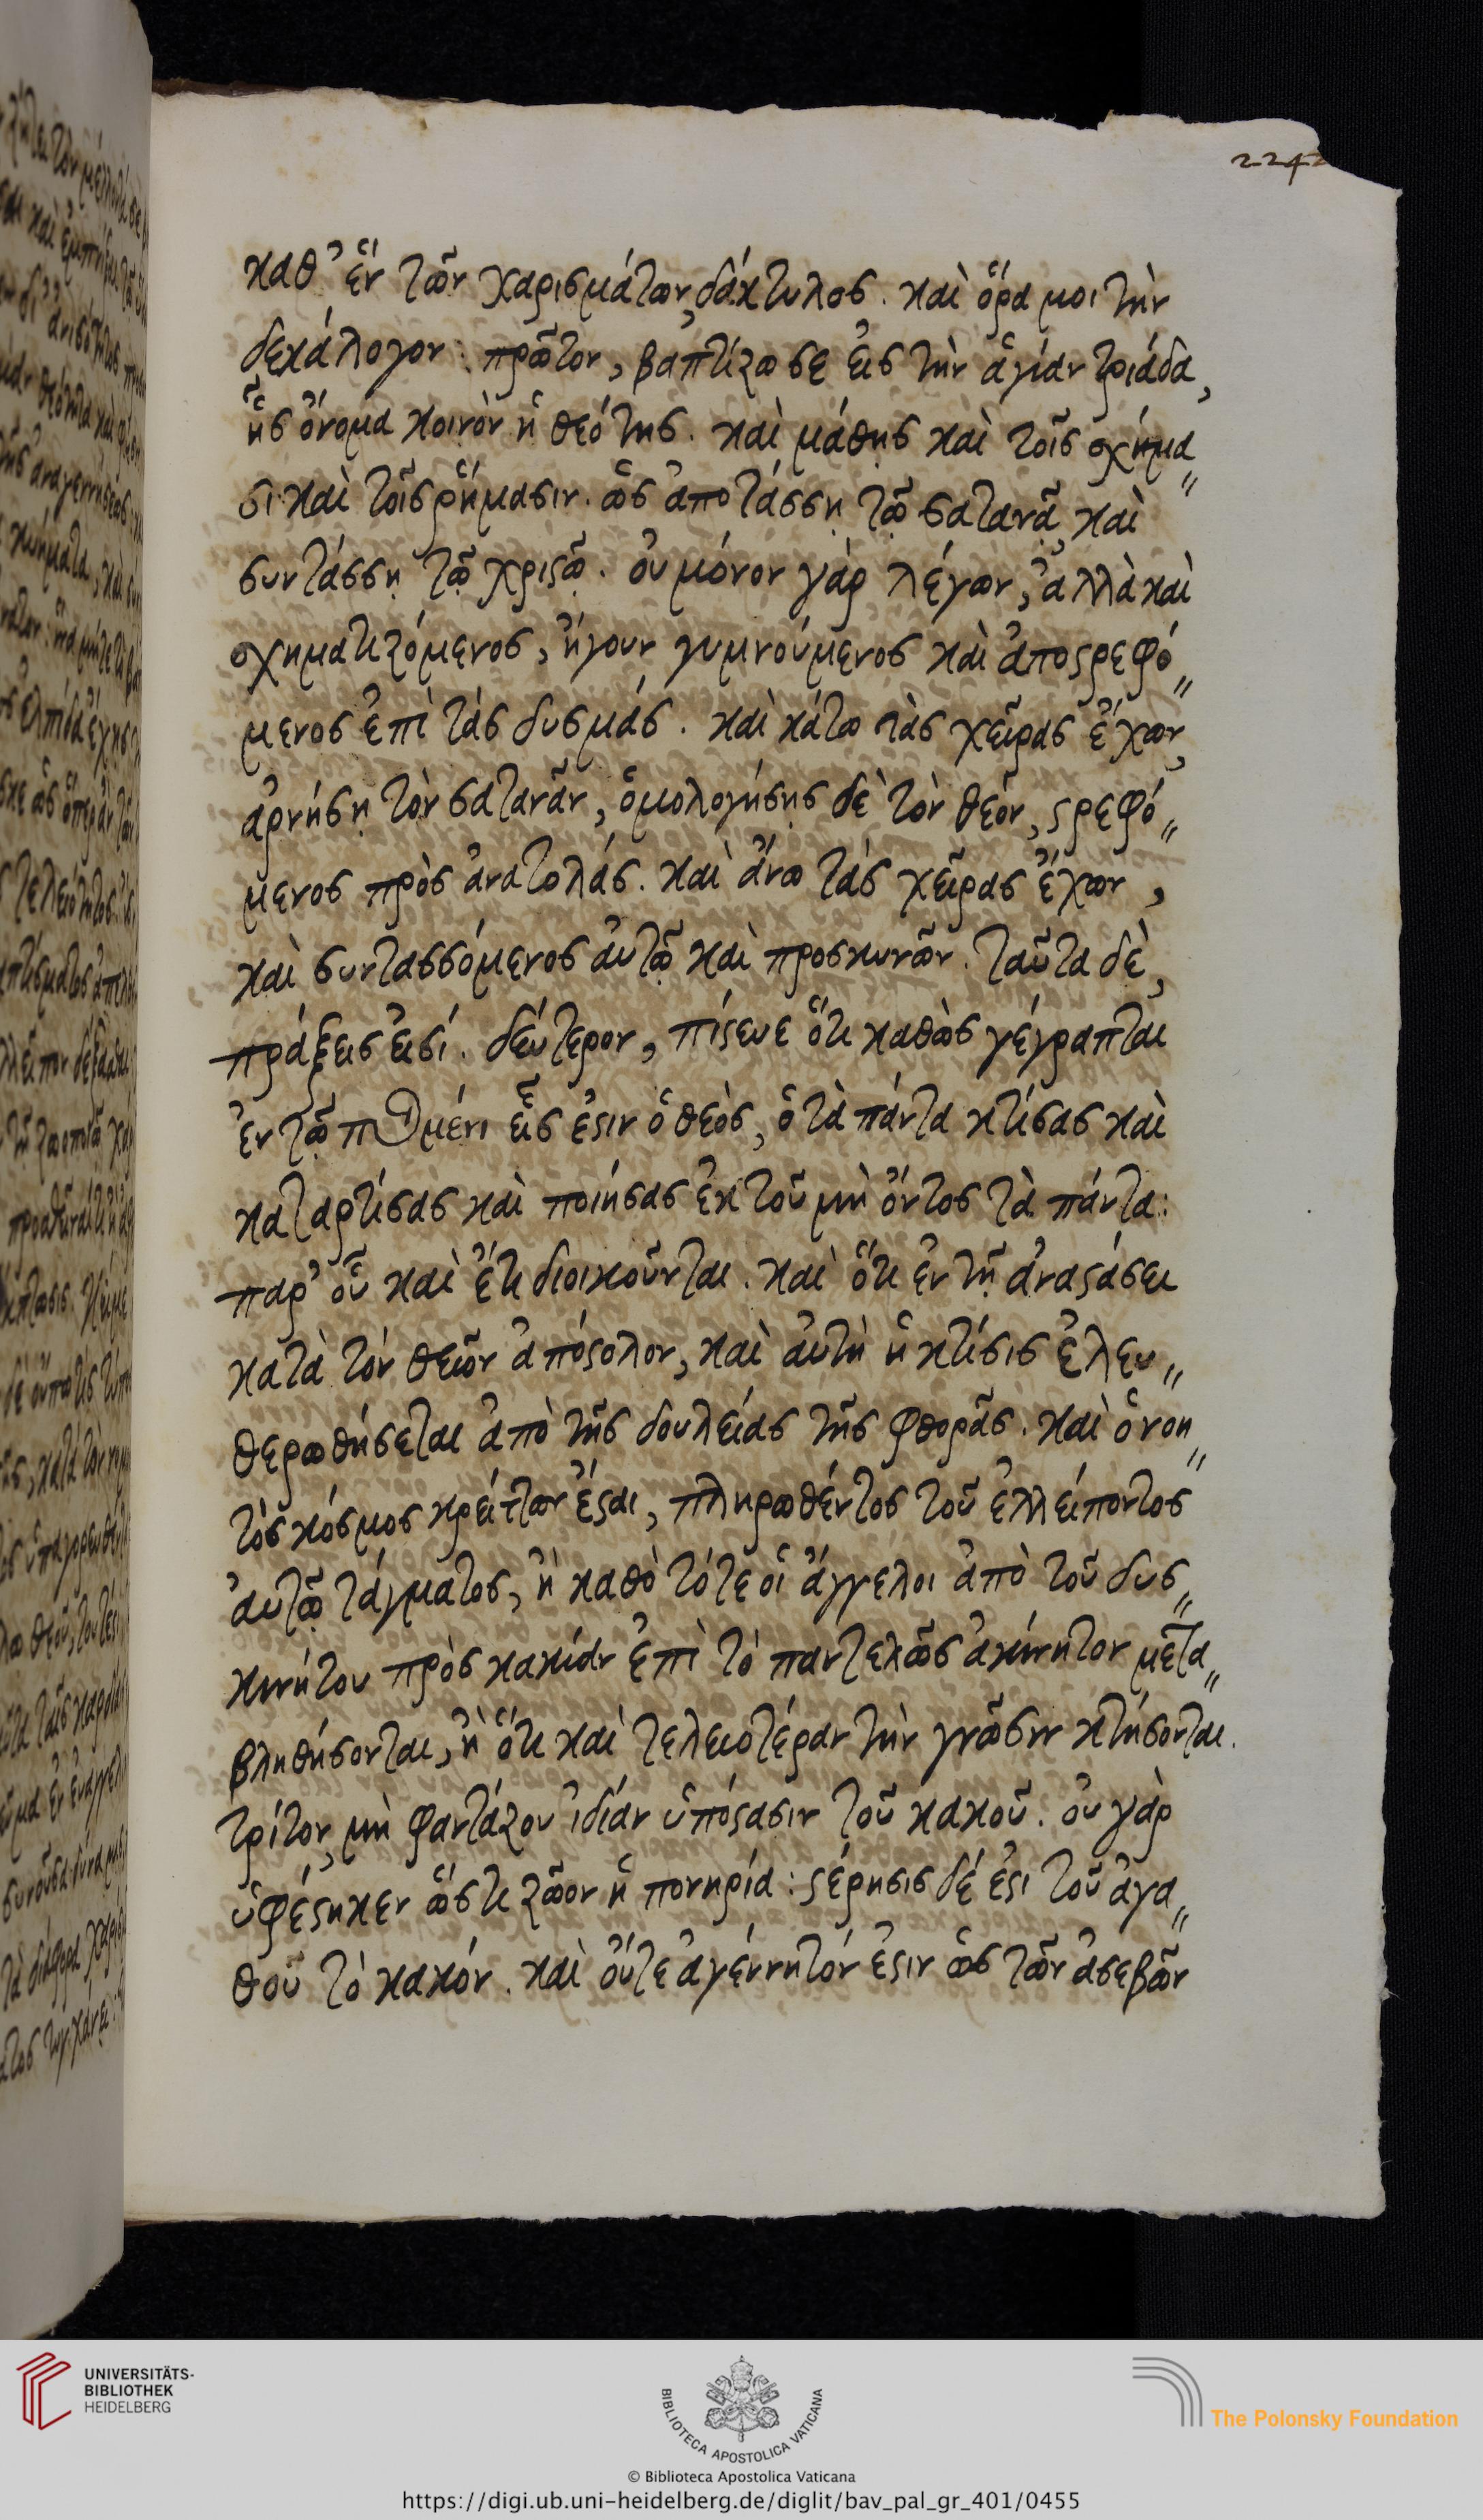 224
καθ' ἓν τῶν χαρισμάτων, δάκτυλος. καὶ ὅρα μοι τὴν
δεκάλογον: πρῶτον, βαπτίζω σε εἰς τὴν ἁγίαν τριάδα,
ἧς ὄνομα κοινὸν ἡ θεότης. καὶ μάθῃς καὶ τοῖς σχήμα„
σι καὶ τοῖς ῥήμασιν. ὡς ἀποτάσσῃ τῷ σατανᾷ, καὶ
συντάσσῃ τῷ χριστῷ. οὐ μόνον γὰρ λέγων, ἀλλὰ καὶ
σχηματιζόμενος, ἤγουν γυμνούμενος καὶ ἀποστρεφό„
μενος ἐπὶ τὰς δυσμάς. καὶ κάτω τὰς χεῖρας ἔχων,
ἀρνήσῃ τὸν σατανᾶν, ὁμολογήσῃς δὲ τὸν θεόν, στρεφό„
μενος πρὸς ἀνατολάς. καὶ ἄνω τὰς χεῖρας ἔχων,
καὶ συντασσόμενος αὐτῷ καὶ προσκυνῶν. ταῦτα δὲ,
πράξεις εἰσί. δεύτερον, πίστευε ὅτι καθὼς γέγραπται
ἐν τῷ ποιμένι εἷς ἐστιν ὁ θεὸς, ὁ τὰ πάντα κτίσας καὶ
καταρτίσας καὶ ποιήσας ἐκ τοῦ μὴ ὄντος τὰ πάντα:
παρ' οὗ καὶ ἔτι διοικοῦνται. καὶ ὅτι ἐν τῇ ἀναστάσει
κατὰ τὸν θεῖον ἀπόστολον, καὶ αὐτὴ ἡ κτίσις ἐλευ„
θερωθήσεται ἀπὸ τῆς δουλείας τῆς φθορᾶς. καὶ ὁ νοη„
τὸς κόσμος κρείττων ἔσται, πληρωθέντος τοῦ ἐλλείποντος
αὐτῷ τάγματος, ἢ καθὸ τότε οἱ ἄγγελοι ἀπὸ τοῦ δυσ„
κινήτου πρὸς κακίαν ἐπὶ τὸ παντελῶς ἀκίνητον μετα„
βληθήσονται, ἢ ὅτι καὶ τελειοτέραν τὴν γνῶσιν κτήσονται.
τρίτον, μὴ φαντάζου ἰδίαν ὑπόστασιν τοῦ κακοῦ. οὐ γὰρ
ὑφέστηκεν ὥς τι ζῶον ἡ πονηρία: στέρησις δέ ἐστι τοῦ ἀγα„
θοῦ τὸ κακόν. καὶ οὔτε ἀγέννητόν ἐστιν ὡς τῶν ἀσεβῶν
UNIVERSITÄTS-
BIBLIOTHEK
HEIDELBERG
BIBLIOTECA APOSTOLICA VATICANA
The Polonsky Foundation
© Biblioteca Apostolica Vaticana
https://digi.ub.uni-heidelberg.de/diglit/bav_pal_gr_401/0455